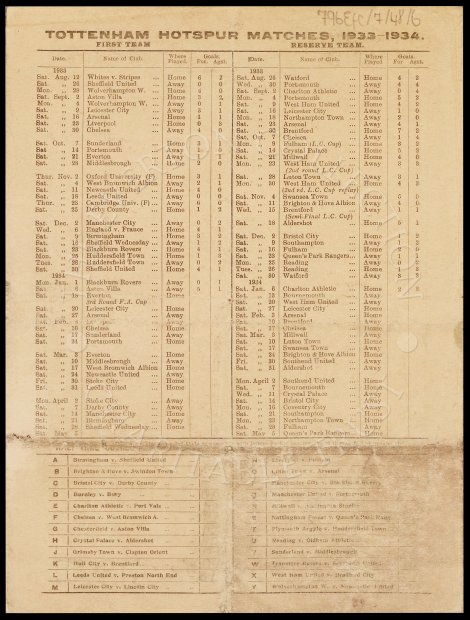 796EFC/7/48/6
TOTTENHAM HOTSPUR MATCHES, 1933-1934.
FIRST TEAM
Date. Name of Club. Where Played. Goals. For Agst.
1933
Sat. Aug. 12 Whites v. Stripes ... Home 6 2
Sat. „ 26 Sheffield United ... Away 0 0
Mon. „ 28 Wolverhampton W. ... Home 4 0
Sat. Sept. 2 Aston Villa ... Home 3 2
Mon. „ 4 Wolverhampton W. ... Away 0 1
Sat. „ 9 Leicester City ... Away 3 1
Sat. „ 16 Arsenal ... Home 1 1
Sat. „ 23 Liverpool ... Home 0 3
Sat. „ 30 Chelsea ... Away 4 0
Sat. Oct. 7 Sunderland ... Home 3 1
Sat. „ 14 Portsmouth ... Away 1 0
Sat. „ 21 Everton ... Away 1 1
Sat. „ 28 Middlesbrough ... Home 2 0
Thur. Nov. 2 Oxford University (F) Home 3 1
Sat. „ 4 West Bromwich Albion Away 2 1
Sat. „ 11 Newcastle United ... Home 4 0
Sat. „ 18 Leeds United ... Away 0 0
Thur. „ 23 Cambridge Univ. (F) ... Away 0 2
Sat. „ 25 Derby County ... Home 1 2
Sat. Dec. 2 Manchester City ... Away 0 2
Wed. „ 6 England v. France ... Home 4 1
Sat. „ 9 Birmingham ... Home 3 2
Sat. „ 16 Sheffield Wednesday ... Away 1 2
Sat. „ 23 Blackburn Rovers ... Home 4 1
Mon. „ 25 Huddersfield Town ... Home 1 3
Tues. „ 26 Huddersfield Town ... Away 0 2
Sat. „ 30 Sheffield United ... Home 4 1
1934
Mon. Jan. 1 Blackburn Rovers ... Away 0 1
Sat. „ 6 Aston Villa ... Away 5
Sat. „ 13 Everton ... Home
3rd Round F.A. Cup
Sat. „ 20 Leicester City ... Home
Sat. „ 27 Arsenal ... Away
Sat. Feb.
Sat. „ 10 Chelsea ... Home
Sat. „ 17 Sunderland ... Away
Sat. „ 24 Portsmouth ... Home
Sat. Mar. 3 Everton ... Home
Sat. „ 10 Middlesbrough ... Away
Sat. „ 17 West Bromwich Albion Home
Sat. „ 24 Newcastle United ... Away
Fri. „ 30 Stoke City ... Home
Sat. „ 31 Leeds United ... Home
Mon. April 2 Stoke City ... Away
Sat. „ 7 Derby County ... Away
Sat. „ 14 Manchester City ... Home
Sat. „ 21 Birmingham ... Away
Sat. „ 28 Sheffield Wednesday ... Home
Sat. May 5
RESERVE TEAM.
Date. Name of Club. Where Played Goals. For Agst.
1933
Sat. Aug. 26 Watford ... Home 4 2
Wed. „ 30 Portsmouth ... Away 4 3
Sat. Sept. 2 Charlton Athletic ... Away 0 4
Mon. „ 4 Portsmouth ... Home 5 2
Sat. „ 9 West Ham United ... Home 4 2
Sat. „ 16 Leicester City ... Away 1 0
Mon. „ 18 Northampton Town ... Away 2 0
Sat. „ 23 Arsenal ... Away 4 1
Sat. „ 30 Brentford ... Home 7 2
Sat. Oct. 7 Chelsea ... Away 1 4
Mon. „ 9 Fulham (L.C. Cup) ... Home 3 2
Sat. „ 14 Crystal Palace ... Home 5 2
Sat. „ 21 Millwall ... Home 4 0
Mon. „ 23 West Ham United ... Away 3 3
(2nd round L.C. Cup)
Sat. „ 28 Luton Town ... Away 3 1
Mon. „ 30 West Ham United ... Home 4 3
(2nd rd. L.C. Cup replay)
Sat. Nov. 4 Swansea Town ... Home 5 0
Sat. „ 11 Brighton & Hove Albion Away 4 0
Wed. „ 15 Brentford ... Away 1
(Semi-Final L.C. Cup)
Sat. „ 18 Aldershot ... Home 5 1
Sat. Dec. 2 Bristol City ... Home 1 2
Sat. „ 9 Southampton ... Away 1 3
Sat. „ 16 Fulham ... Home 2 0
Sat. „ 23 Queen's Park Rangers ... Away 1 1
Mon. „ 25 Reading ... Away 0 0
Tues. „ 26 Reading ... Home 1 3
Sat. „ 30 Watford ... Away 3 3
1934
Sat. Jan. 6 Charlton Athletic ... Home 2 3
Sat. „ 13 Bournemouth ... Away
Sat. „ 20 West Ham United ... Away
Sat. „ 27 Leicester City ... Home
Sat. Feb. 3 Arsenal ... Home
Sat. „ 10 Brentford ... Away
Sat. „ 17 Chelsea ... Home
Sat. „ 24 Crystal Palace ... Away
Sat. Mar. 3 Millwall ... Away
Sat. „ 10 Luton Town ... Home
Sat. „ 17 Swansea Town ... Away
Sat. „ 24 Brighton & Hove Albion Home
Fri. „ 30 Southend United ... Away
Sat. „ 31 Aldershot ... Away
Mon. April 2 Southend United ... Home
Sat. „ 7 Bournemouth ... Home
Wed. „ 11 Crystal Palace ... Away
Sat. „ 14 Bristol City ... Away
Mon. „ 16 Coventry City ... Away
Sat. „ 21 Southampton ... Home
Mon. „ 23 Northampton Town ... Home
Sat. „ 28 Fulham ... Away
Sat. May 5 Queen's Park Rangers ... Home
A Birmingham v. Sheffield United
B Brighton & Hove v. Swindon Town
C Bristol City v. Derby County
D Burnley v. Bury
E Charlton Athletic v. Port Vale
F Chelsea v. West Bromwich A.
G Chesterfield v. Aston Villa
H Crystal Palace v. Aldershot
J Grimsby Town v. Clapton Orient
K Hull City v. Brentford
L Leeds United v. Preston North End
M Leicester City v. Lincoln City
N
O v. Arsenal
P Manchester City v. Blackburn Rovers
Q Manchester United v. Portsmouth
R
S Nottingham Forest v. Queen's Park Rang.
T Plymouth Argyle v. Huddersfield Town
U Reading v. Oldham Athletic
V Sunderland v. Middlesbrough
W Tranmere Rovers v.
X West Ham United v. Bradford City
Y Wolverhampton W. v. Newcastle United